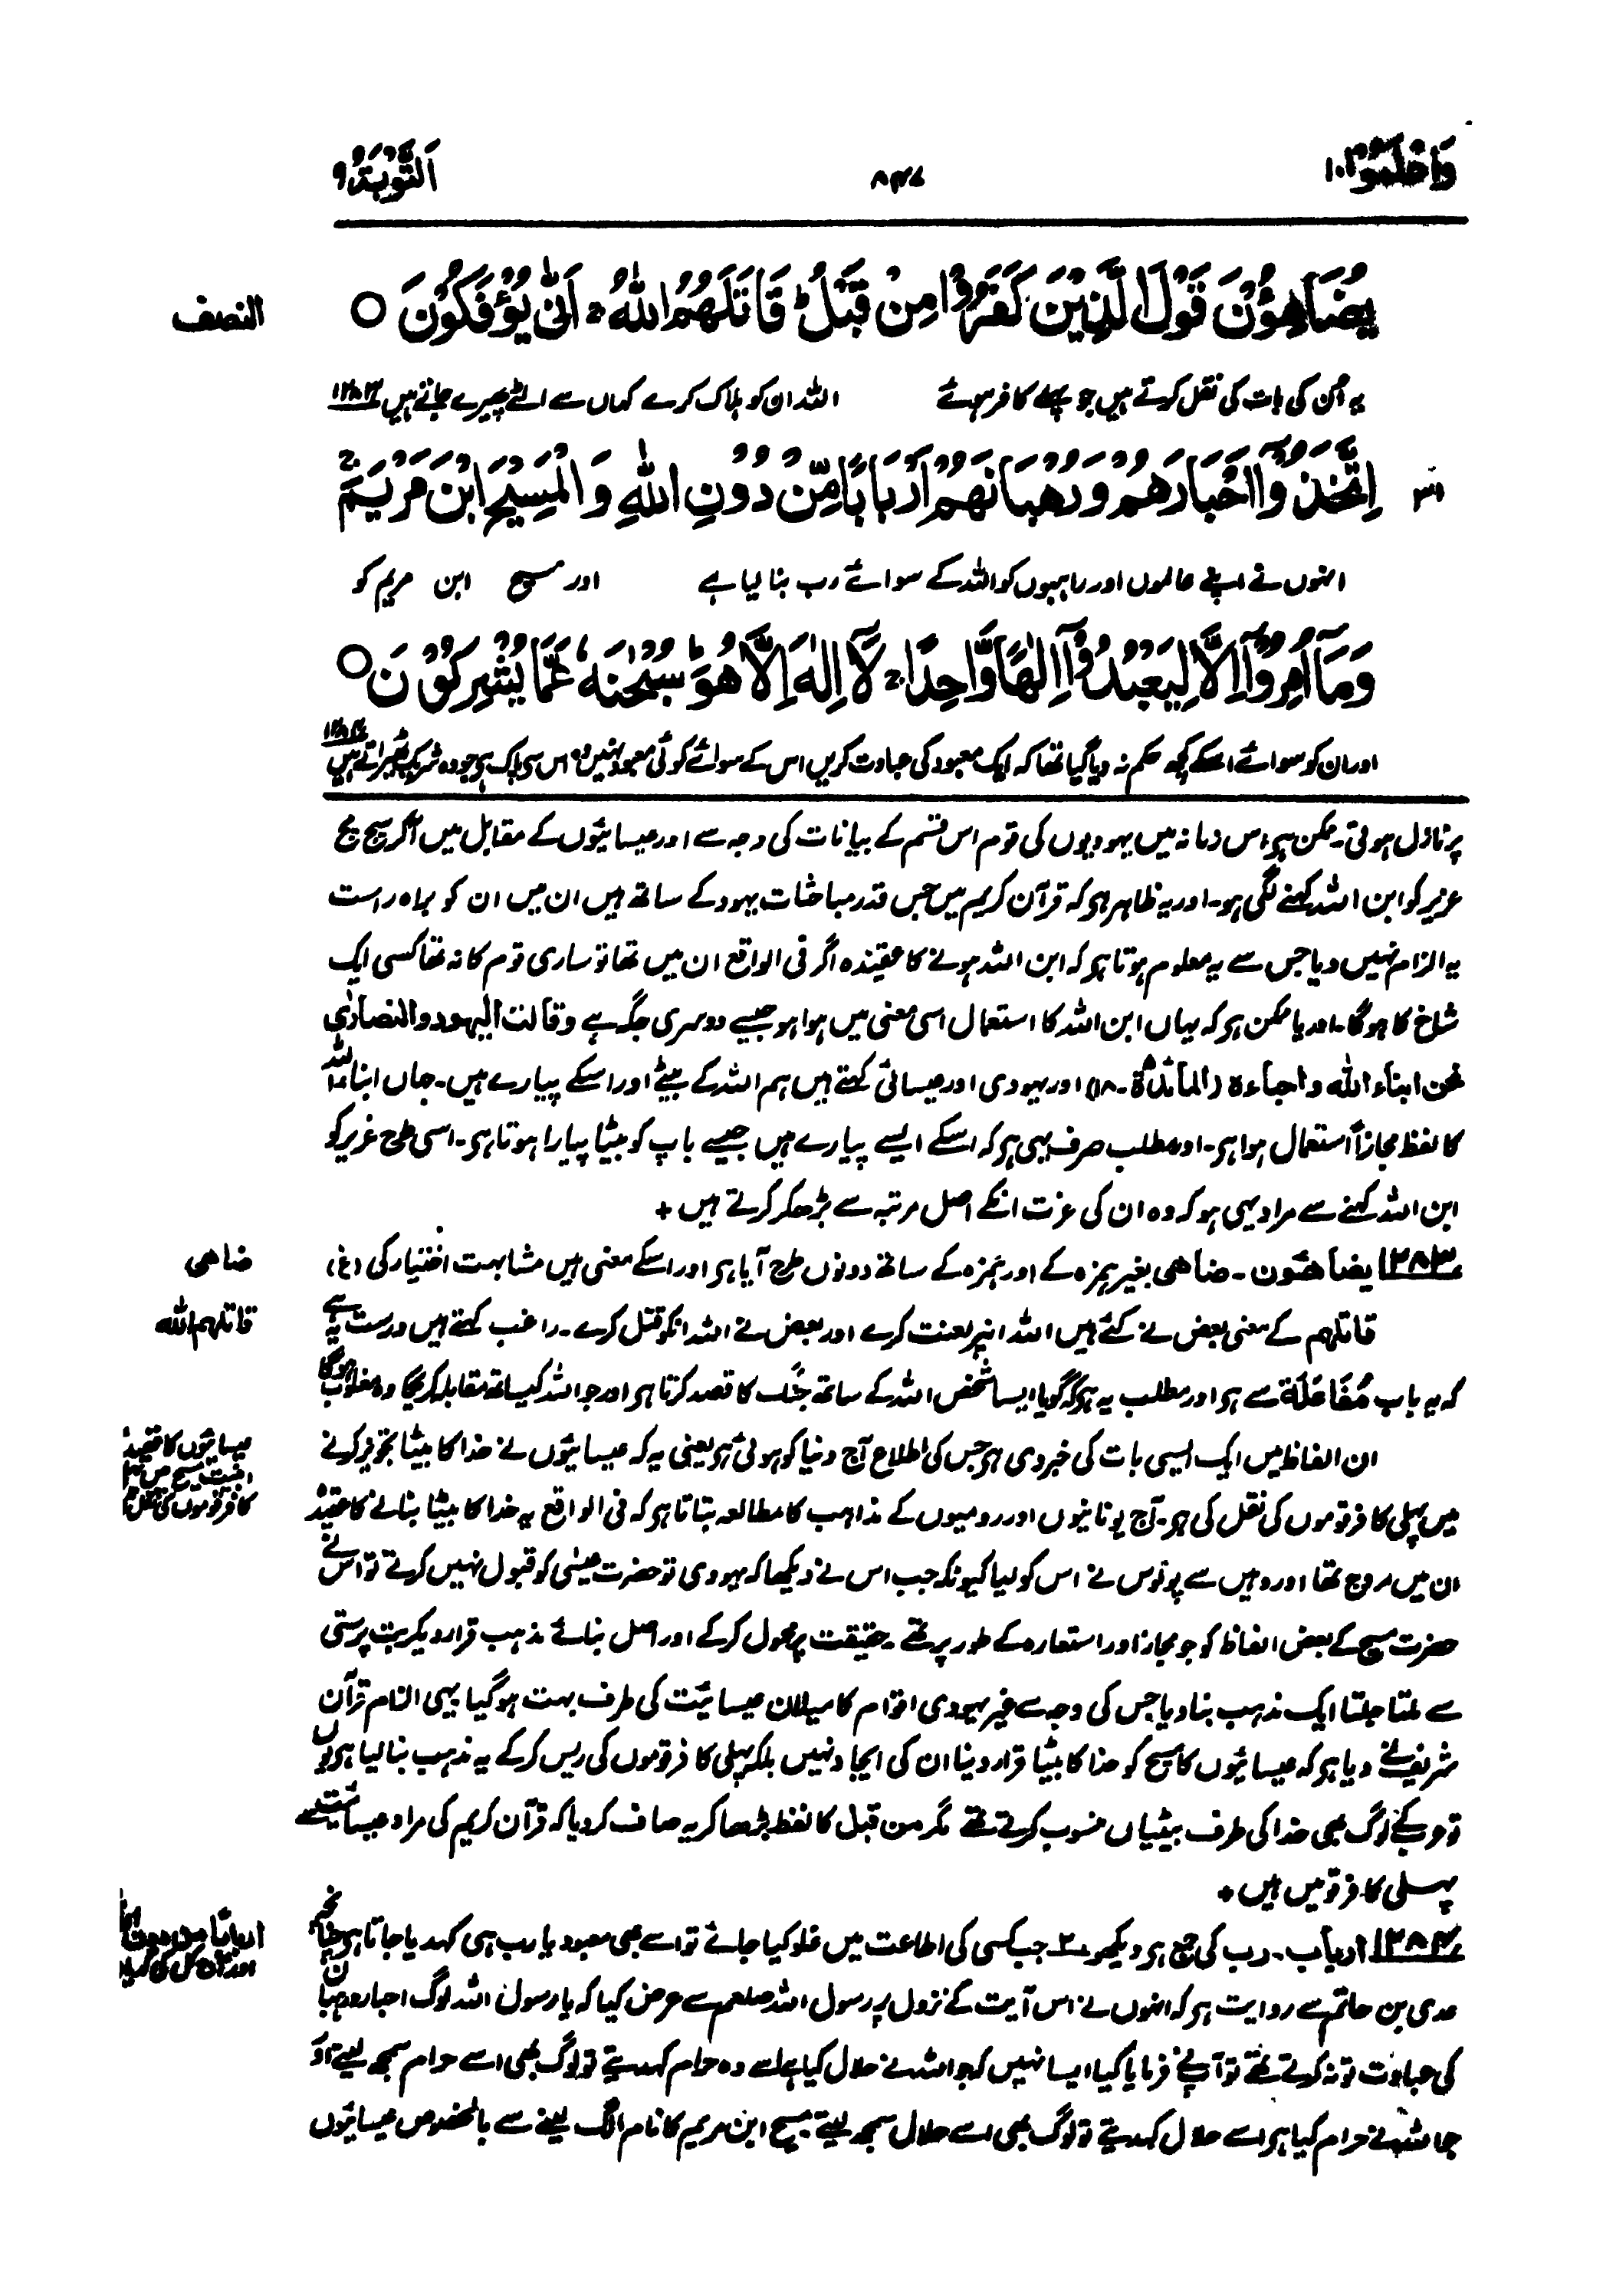 وَاعْلَمُوْٓا ١٠
٨٤٧
اَلتَّوْبَةُ ٩
يُضَاهِـُٔوْنَ قَوْلَ الَّذِيْنَ كَفَرُوْا مِنْ قَبْلُ ؕ قَاتَلَهُمُ اللّٰهُ ۚ اَنّٰى يُؤْفَكُوْنَ ○
النصف
یہ اُن کی بات کی نقل کرتے ہیں جو پہلے کافر ہوئے اللہ ان کو ہلاک کرے کہاں سے الٹے پھیرے جاتے ہیں ۱۲۸۳
اِتَّخَذُوْٓا اَحْبَارَهُمْ وَرُهْبَانَهُمْ اَرْبَابًا مِّنْ دُوْنِ اللّٰهِ وَالْمَسِيْحَ ابْنَ مَرْيَمَ ۚ
٣١
انہوں نے اپنے عالموں اور راہبوں کو اللہ کے سوائے رب بنا لیا ہے اور مسیح ابن مریم کو
وَمَآ اُمِرُوْٓا اِلَّا لِيَعْبُدُوْٓا اِلٰهًا وَّاحِدًا ۚ لَآ اِلٰهَ اِلَّا هُوَ ؕ سُبْحٰنَهٗ عَمَّا يُشْرِكُوْنَ ○
اور ان کو سوائے اسکے کچھ حکم نہ دیا گیا تھا کہ ایک معبود کی عبادت کریں اس کے سوائے کوئی معبود نہیں وہ اس سی پاک ہی جو وہ شریک ٹھہراتے ہیں ۱۲۸۴
پر نازل ہوتی۔ ممکن ہی اس زمانہ میں یہودیوں کی قوم اس قسم کے بیانات کی وجہ سے اور عیسائیوں کے مقابل میں آکر سچ مچ
عزیر کو ابن اللہ کہنے لگی ہو۔ اور یہ ظاہر ہی کہ قرآن کریم میں جس قدر مباحثات یہود کے ساتھ ہیں ان میں ان کو براہ راست
یہ الزام نہیں دیا جس سے یہ معلوم ہوتا ہی کہ ابن اللہ ہونے کا عقیدہ اگر فی الواقع ان میں تھا تو ساری قوم کا نہ تھا کسی ایک
شاخ کا ہوگا۔ اور یا ممکن ہی کہ یہاں ابن اللہ کا استعمال اسی معنی میں ہوا ہو جیسے دوسری جگہ ہے وقالت الیہود والنصاریٰ
نحن ابناء اللہ واحباءہ (المائدۃ۔ ۱۸) اور یہودی اور عیسائی کہتے ہیں ہم اللہ کے بیٹے اور اسکے پیارے ہیں۔ جہاں ابناء اللہ
کا لفظ مجازاً استعمال ہوا ہی۔ اور مطلب صرف یہی ہی کہ اسکے ایسے پیارے ہیں جیسے باپ کو بیٹا پیارا ہوتا ہی۔ اسی طرح عزیر کو
ابن اللہ کہنے سے مراد یہی ہو کہ وہ ان کی عزت انکے اصل مرتبہ سے بڑھکر کرتے ہیں +
۱۲۸۳ یضاھئون۔ ضاھی بغیر ہمزہ کے اور ہمزہ کے ساتھ دونوں طرح آیا ہی اور اسکے معنی ہیں مشابہت اختیار کی (غ)
ضاھی
قاتلهم کے معنی بعض نے کئے ہیں اللہ انپر لعنت کرے اور بعض نے اللہ انکو قتل کرے۔ راغب کہتے ہیں درست یہ ہے
قاتلهم الله
کہ یہ باب مُفَاعَلَة سے ہی اور مطلب یہ ہی کہ گویا ایسا شخص اللہ کے ساتھ جنگ کا قصد کرتا ہی اور جو اللہ کیساتھ مقابلہ کریگا وہ مغلوب ہوگا
ان الفاظ میں ایک ایسی بات کی خبر دی ہی جس کی اطلاع آج دنیا کو ہوئی ہی یعنی یہ کہ عیسائیوں نے خدا کا بیٹا تجویز کرنے
عیسائیوں کا عقیدہ
ابنیت مسیح میں
کافر قوموں کی نقل
میں پہلی کافر قوموں کی نقل کی ہی۔ آج یونانیوں اور رومیوں کے مذاہب کا مطالعہ بتاتا ہی کہ فی الواقع یہ خدا کا بیٹا بنانے کا عقیدہ
ان میں مروج تھا اور وہیں سے پولوس نے اس کو لیا کیونکہ جب اس نے دیکھا کہ یہودی تو حضرت عیسیٰ کو قبول نہیں کرتے تو اس نے
حضرت مسیح کے بعض الفاظ کو جو مجاز اور استعارہ کے طور پر تھے۔ حقیقت پر محمول کرکے اور اصل بنائے مذہب قرار دیکر بت پرستی
سے ملتا جلتا ایک مذہب بنا دیا جس کی وجہ سے غیر یہودی اقوام کا میلان عیسائیت کی طرف بہت ہوگیا یہی الزام قرآن
شریف نے دیا ہی کہ عیسائیوں کا مسیح کو خدا کا بیٹا قرار دینا ان کی ایجاد نہیں بلکہ پہلی کافر قوموں کی ریس کرکے یہ مذہب بنا لیا ہی یوں
تو عرب کے لوگ بھی خدا کی طرف بیٹیاں منسوب کرتے تھے مگر من قبل کا لفظ بڑھا کر یہ صاف کردیا کہ قرآن کریم کی مراد عیسائیت سے
پہلی کافر قومیں ہیں +
۱۲۸۴ ارباب۔ رب کی جمع ہی دیکھو ۲۔ جب کسی کی اطاعت میں غلو کیا جائے تو اسے بھی معبود یا رب ہی کہدیا جاتا ہی چنانچہ
اربابا من دون
عدی بن حاتم سے روایت ہی کہ انہوں نے اس آیت کے نزول پر رسول اللہ صلعم سے عرض کیا کہ یا رسول اللہ لوگ احبار و رہبان
کی عبادت تو نہ کرتے تھے تو آپ نے فرمایا کیا ایسا نہیں کہ جو اللہ نے حلال کیا ہے اسے وہ حرام کہدیتے تو لوگ بھی اسے حرام سمجھ لیتے اور
جو اللہ نے حرام کیا ہی اسے حلال کہدیتے تو لوگ بھی اسے حلال سمجھ لیتے مسیح ابن مریم کا نام الگ لینے سے بالخصوص عیسائیوں